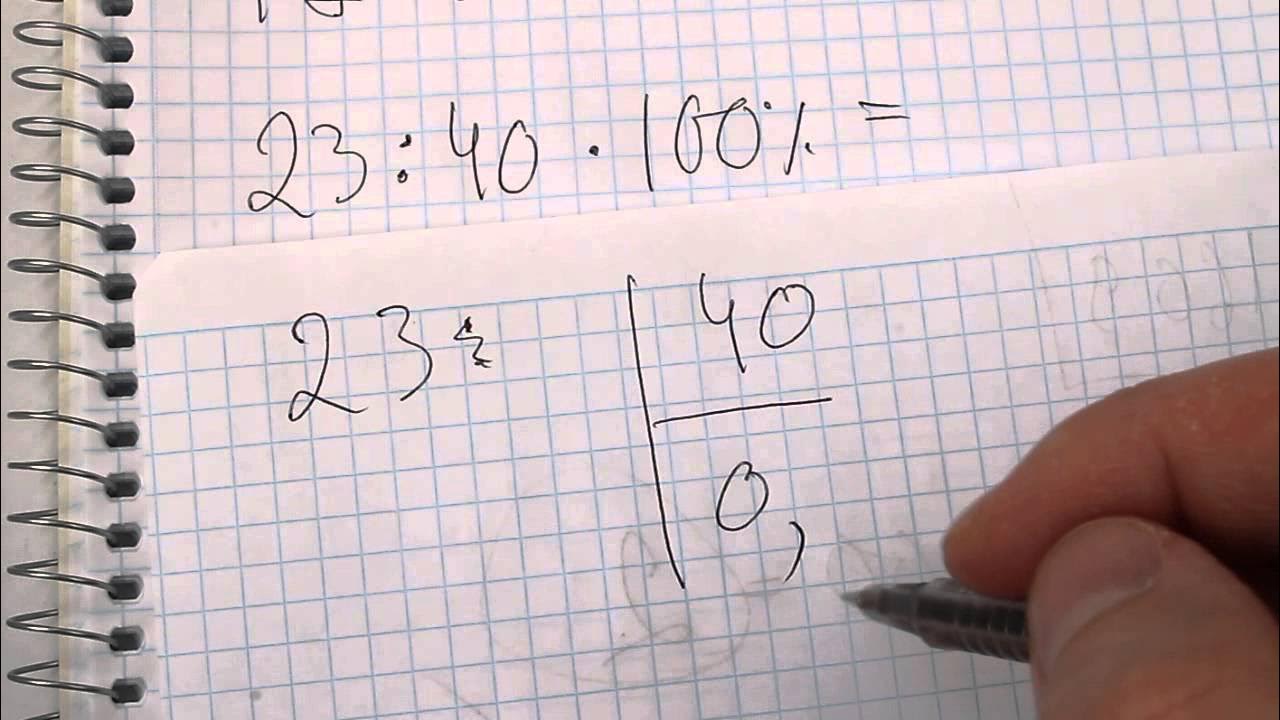 23:40·100%=
23 40
0,